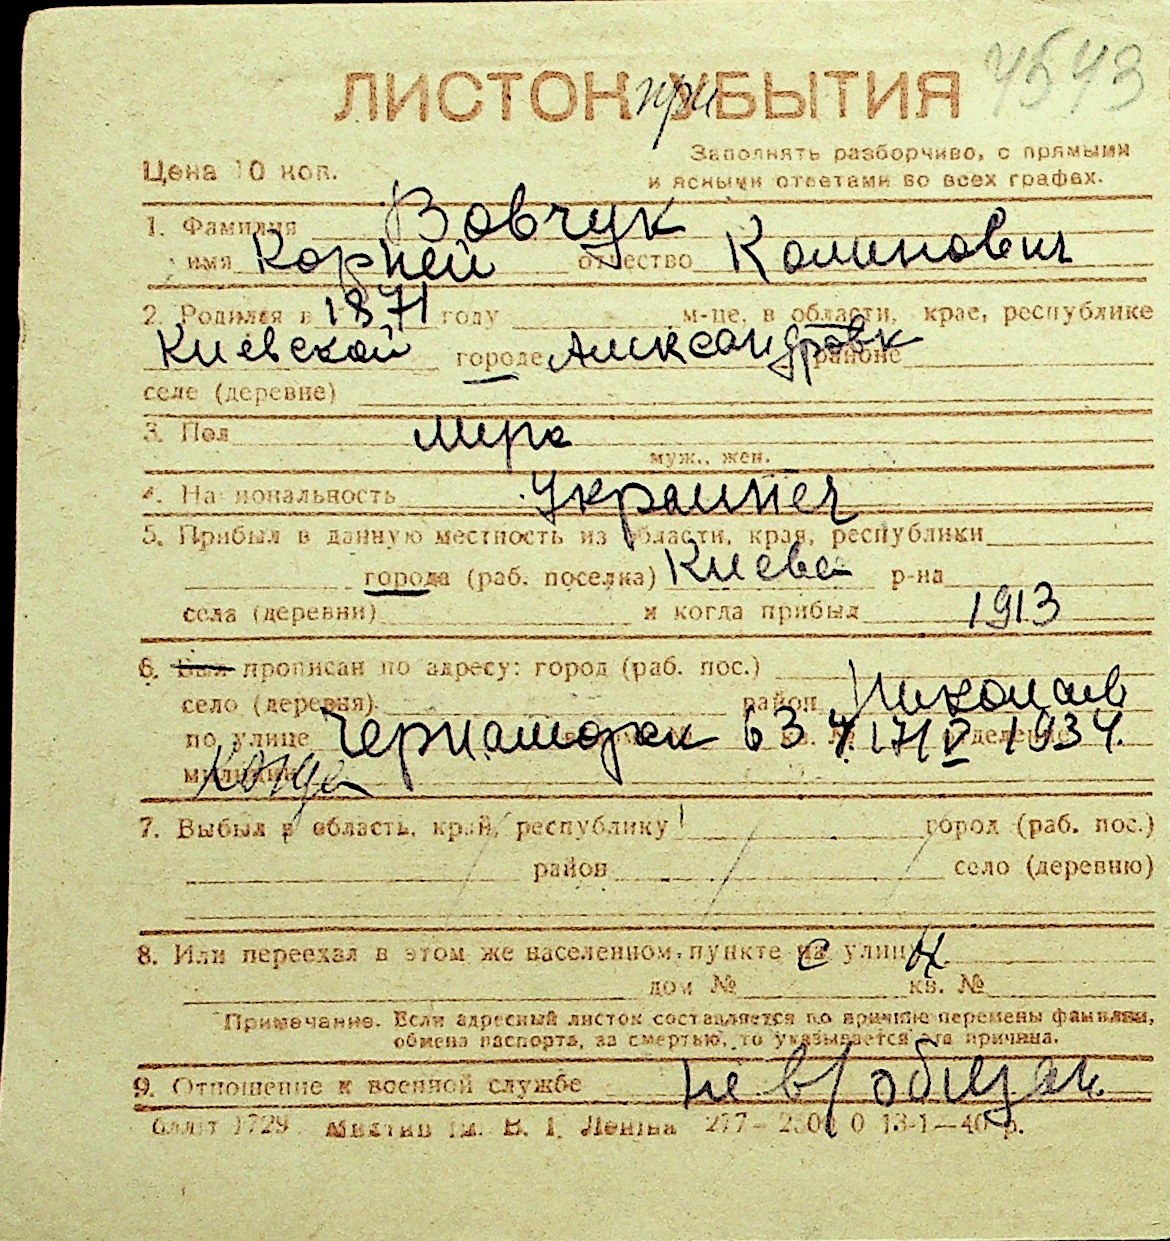 4543
ЛИСТОК при УБЫТИЯ
Заполнять разборчиво, с прямыми
Цена 10 коп. и ясными ответами во всех графах.
1. Фамилия Вовчук
имя Корней отчество Калинович
2. Родился в 1871 году м-це, в области, крае, республике
Киевской городе Александровк районе
селе (деревне)
3. Пол
муж., жен.
4. Национальность Украинец
5. Прибыл в данную местность из области, края, республики
города (раб. поселка) Киева р-на
села (деревни) и когда прибыл 1913
6. Был прописан по адресу: город (раб. пос.)
село (деревня) район Николаев
по улице Черноморск 63 кв. № 4 17/V 1934. отделение
милиции Когда
7. Выбыл в область, край, республику город (раб. пос.)
район село (деревню)
8. Или переехал в этом же населенном пункте на улицу
дом № кв. №
Примечание. Если адресный листок составляется по причине перемены фамилии,
обмена паспорта, за смертью, то указывается эта причина.
9. Отношение к военной службе не в/обязан.
1729 ім. В. І. Леніна 277— 13-1—40 р.